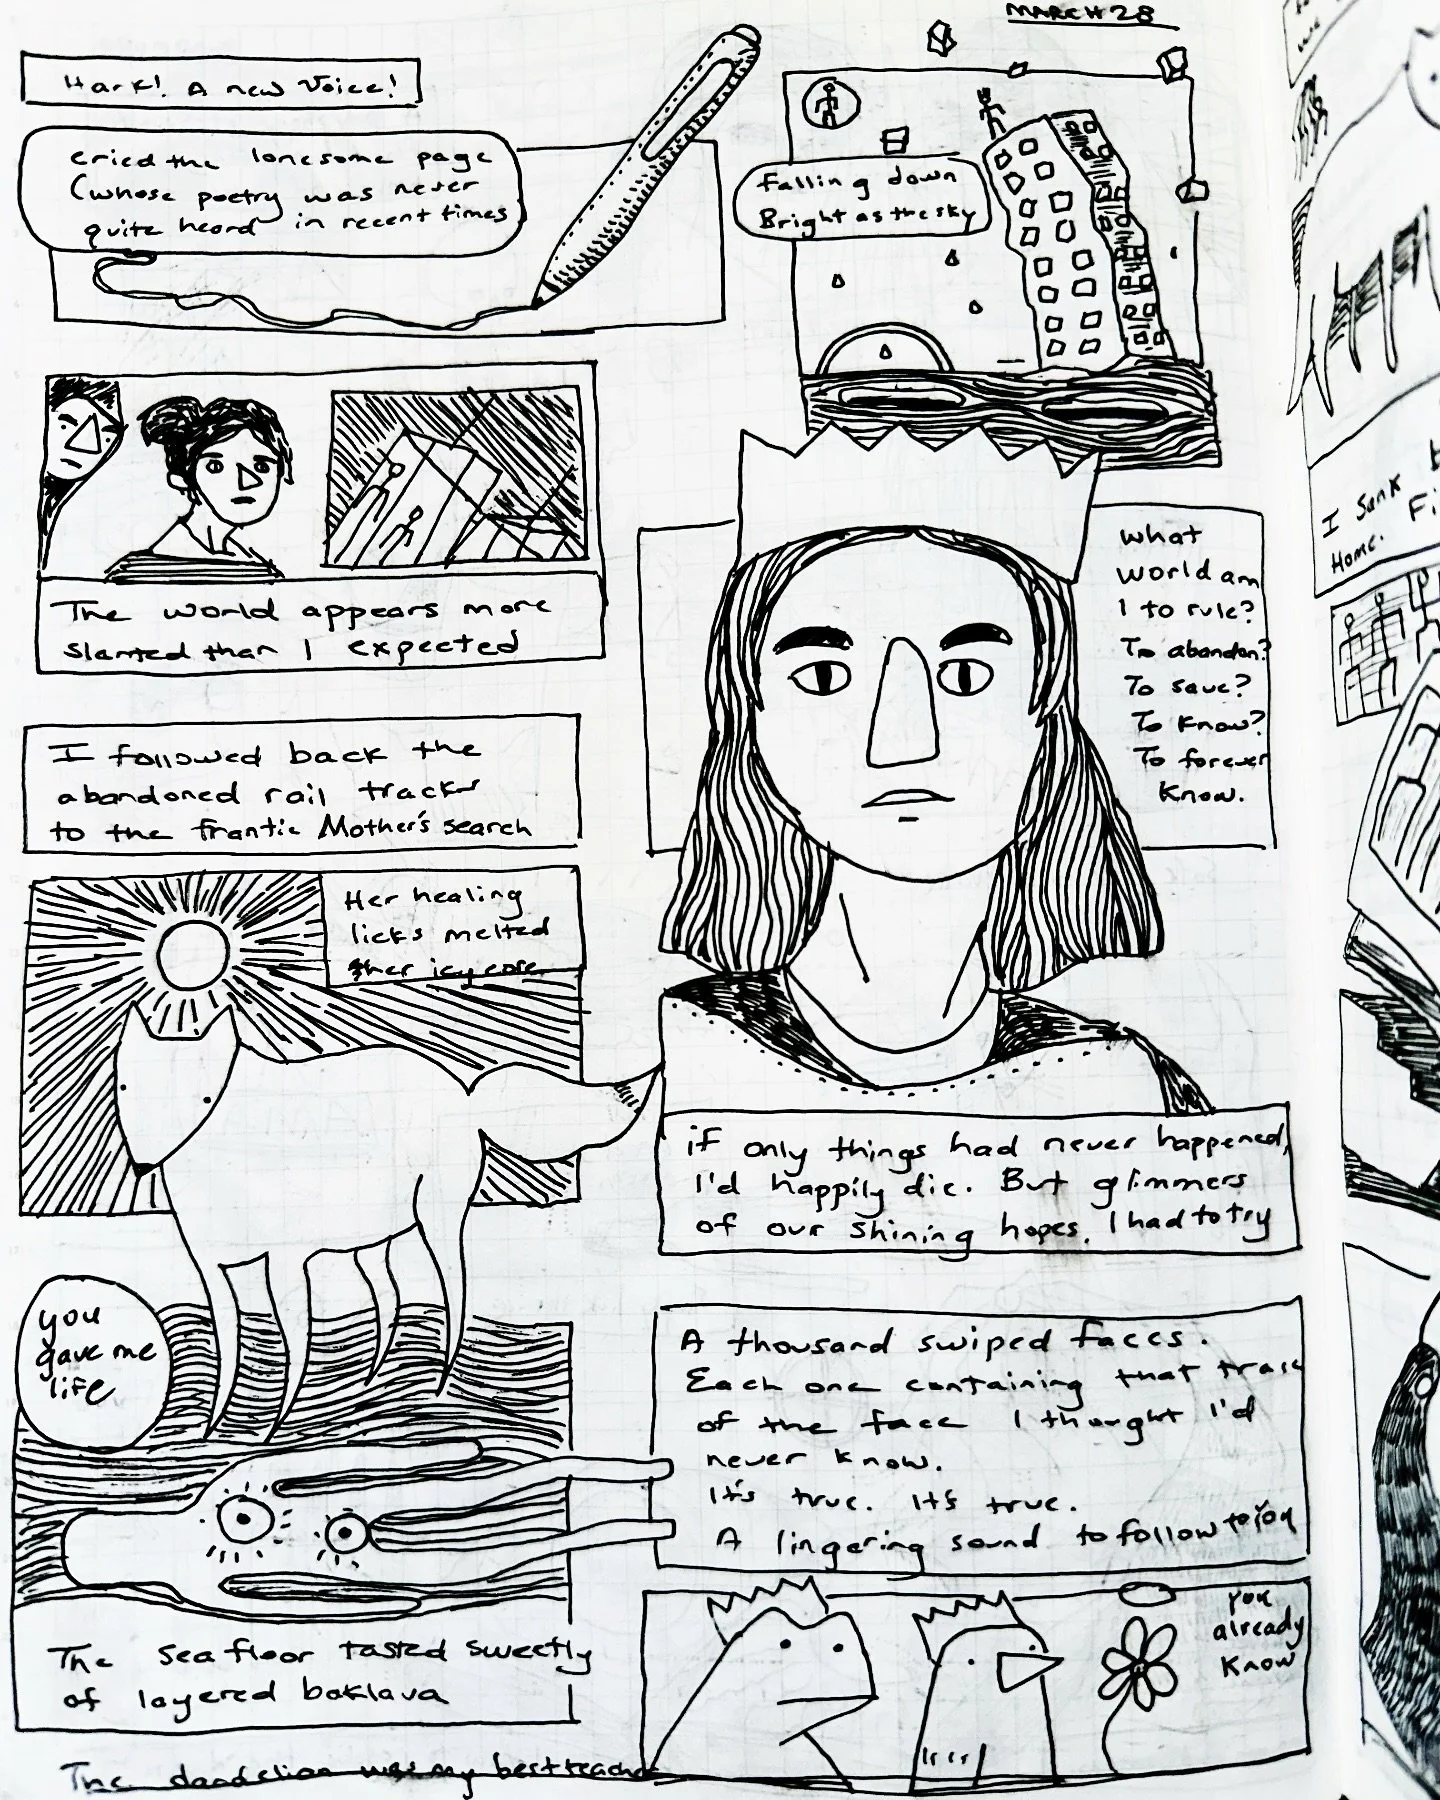 MARCH 28
Hark! A new Voice!
cried the lonesome page
(whose poetry was never
quite heard in recent times
Falling down
Bright as the sky
The world appears more
slanted than I expected
What
World am
I to rule?
To abandon?
To save?
To know?
To forever
know.
I followed back the
abandoned rail tracks
to the frantic Mother's search
Her healing
licks melted
her icy core
if only things had never happened,
I'd happily die. But glimmers
of our shining hopes. I had to try
you
gave me
life
A thousand swiped faces.
Each one containing that trace
of the face I thought I'd
never know.
It's true. It's true.
A lingering sound to follow to you
The sea floor tasted sweetly
of layered baklava
you
already
know
The dandelion was my best teacher
I sank
Home.